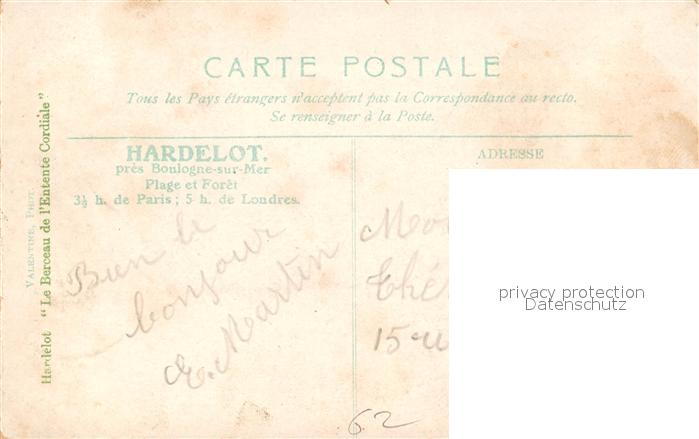 CARTE POSTALE
Tous les Pays étrangers n'acceptent pas la Correspondance au recto.
Se renseigner à la Poste.
HARDELOT,
près Boulogne-sur-Mer
Plage et Forêt
3½ h. de Paris; 5 h. de Londres.
ADRESSE
VALENTINE, PHOT.
Hardelot "Le Berceau de l'Entente Cordiale"
Bien le
bonjour
E. Martin
15
62
privacy protection
Datenschutz